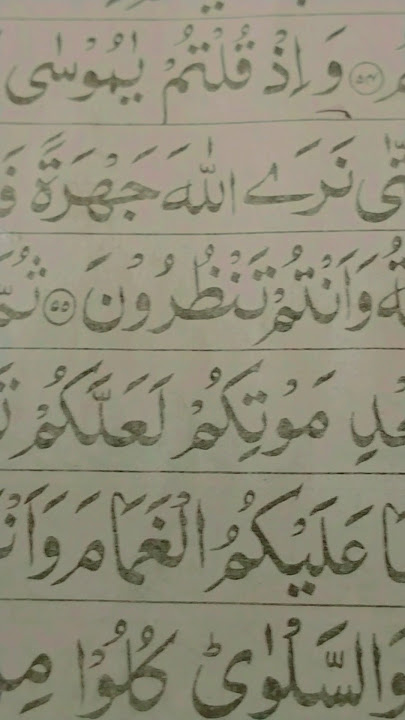 ۵۴ وَاِذْ قُلْتُمْ يٰمُوْسٰى
نَرَى اللّٰهَ جَهْرَةً
وَاَنْتُمْ تَنْظُرُوْنَ ۵۵ ثُمَّ
مَوْتِكُمْ لَعَلَّكُمْ
عَلَيْكُمُ الْغَمَامَ
وَالسَّلْوٰى كُلُوْا مِنْ